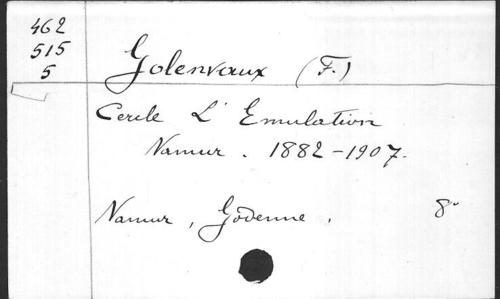 462
515
5
Golenvaux (F.)
Cercle L' Emulation
Namur . 1882-1907.
Namur , Godenne . 8°